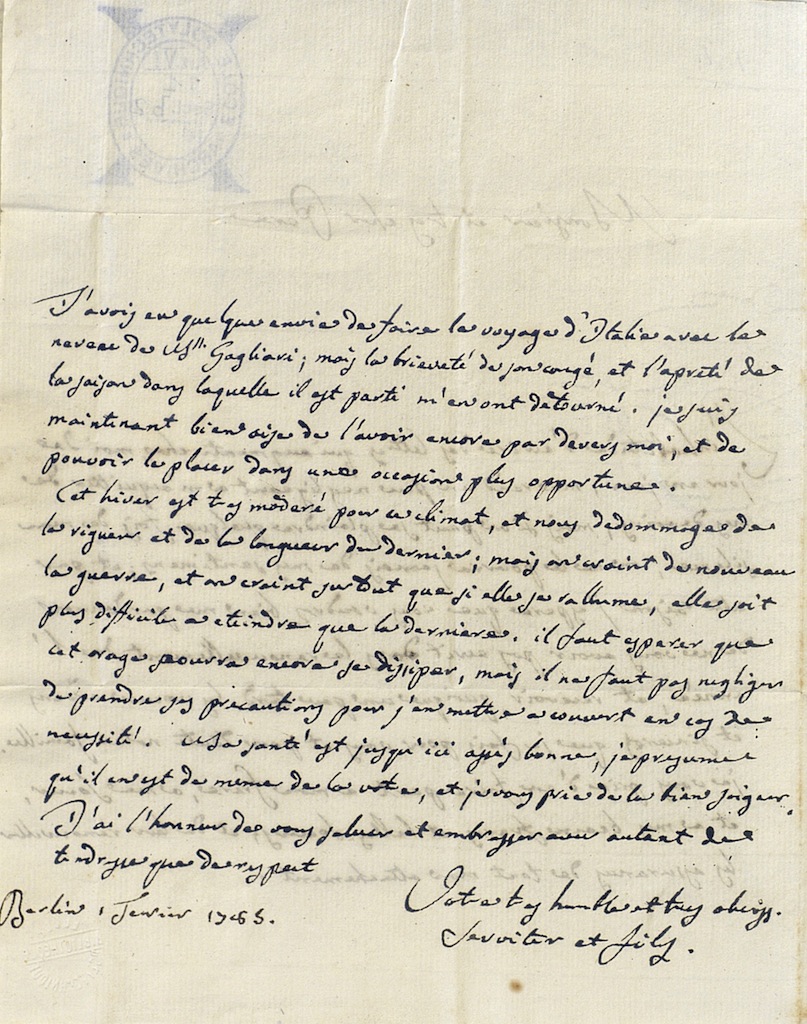 J'avois eu quelque envie de faire le voyage d'Italie avec le
neveu de Mslle Gagliari; mais la brieveté de son congé, et l'apreté de
la saison dans laquelle il est parti m'en ont detourné. je suis
maintenant bien aise de l'avoir encore par devers moi, et de
pouvoir le placer dans une occasion plus opportune.
Cet hiver est tres moderé pour ce climat, et nous dedommage de
la rigueur et de la longueur du dernier; mais on craint de nouveau
la guerre, et on craint surtout que si elle se rallume, elle soit
plus difficile a eteindre que la derniere. il faut esperer que
cet orage pourra encore se dissiper, mais il ne faut pas negliger
de prendre ses precautions pour s'en mettre a couvert en cas de
necessité. Ma santé est jusqu'ici assés bonne, je presume
qu'il en est de meme de la votre, et je vous prie de la bien soigner.
J'ai l'honneur de vous saluer et embrasser avec autant de
tendresse que de respect
Votre tres humble et tres obeiss.
Berlin 1 Fevrier 1785.
Serviter et fils.